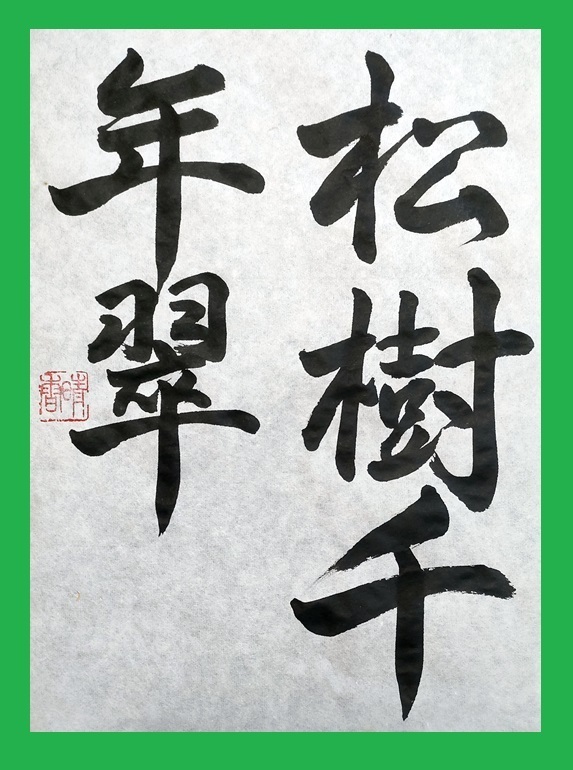 松樹千
年翠
晴香